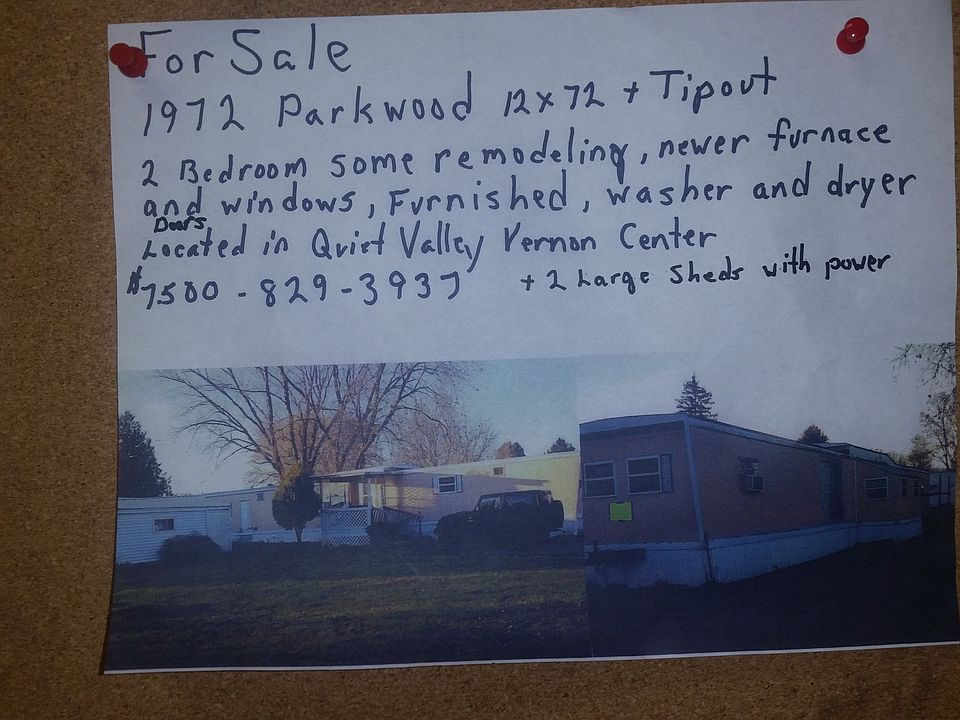 For Sale
1972 Parkwood 12x72 + Tipout
2 Bedroom some remodeling, newer furnace
and windows, Furnished, washer and dryer
Doors
Located in Quiet Valley Vernon Center
$7500 - 829-3937 + 2 Large Sheds with power